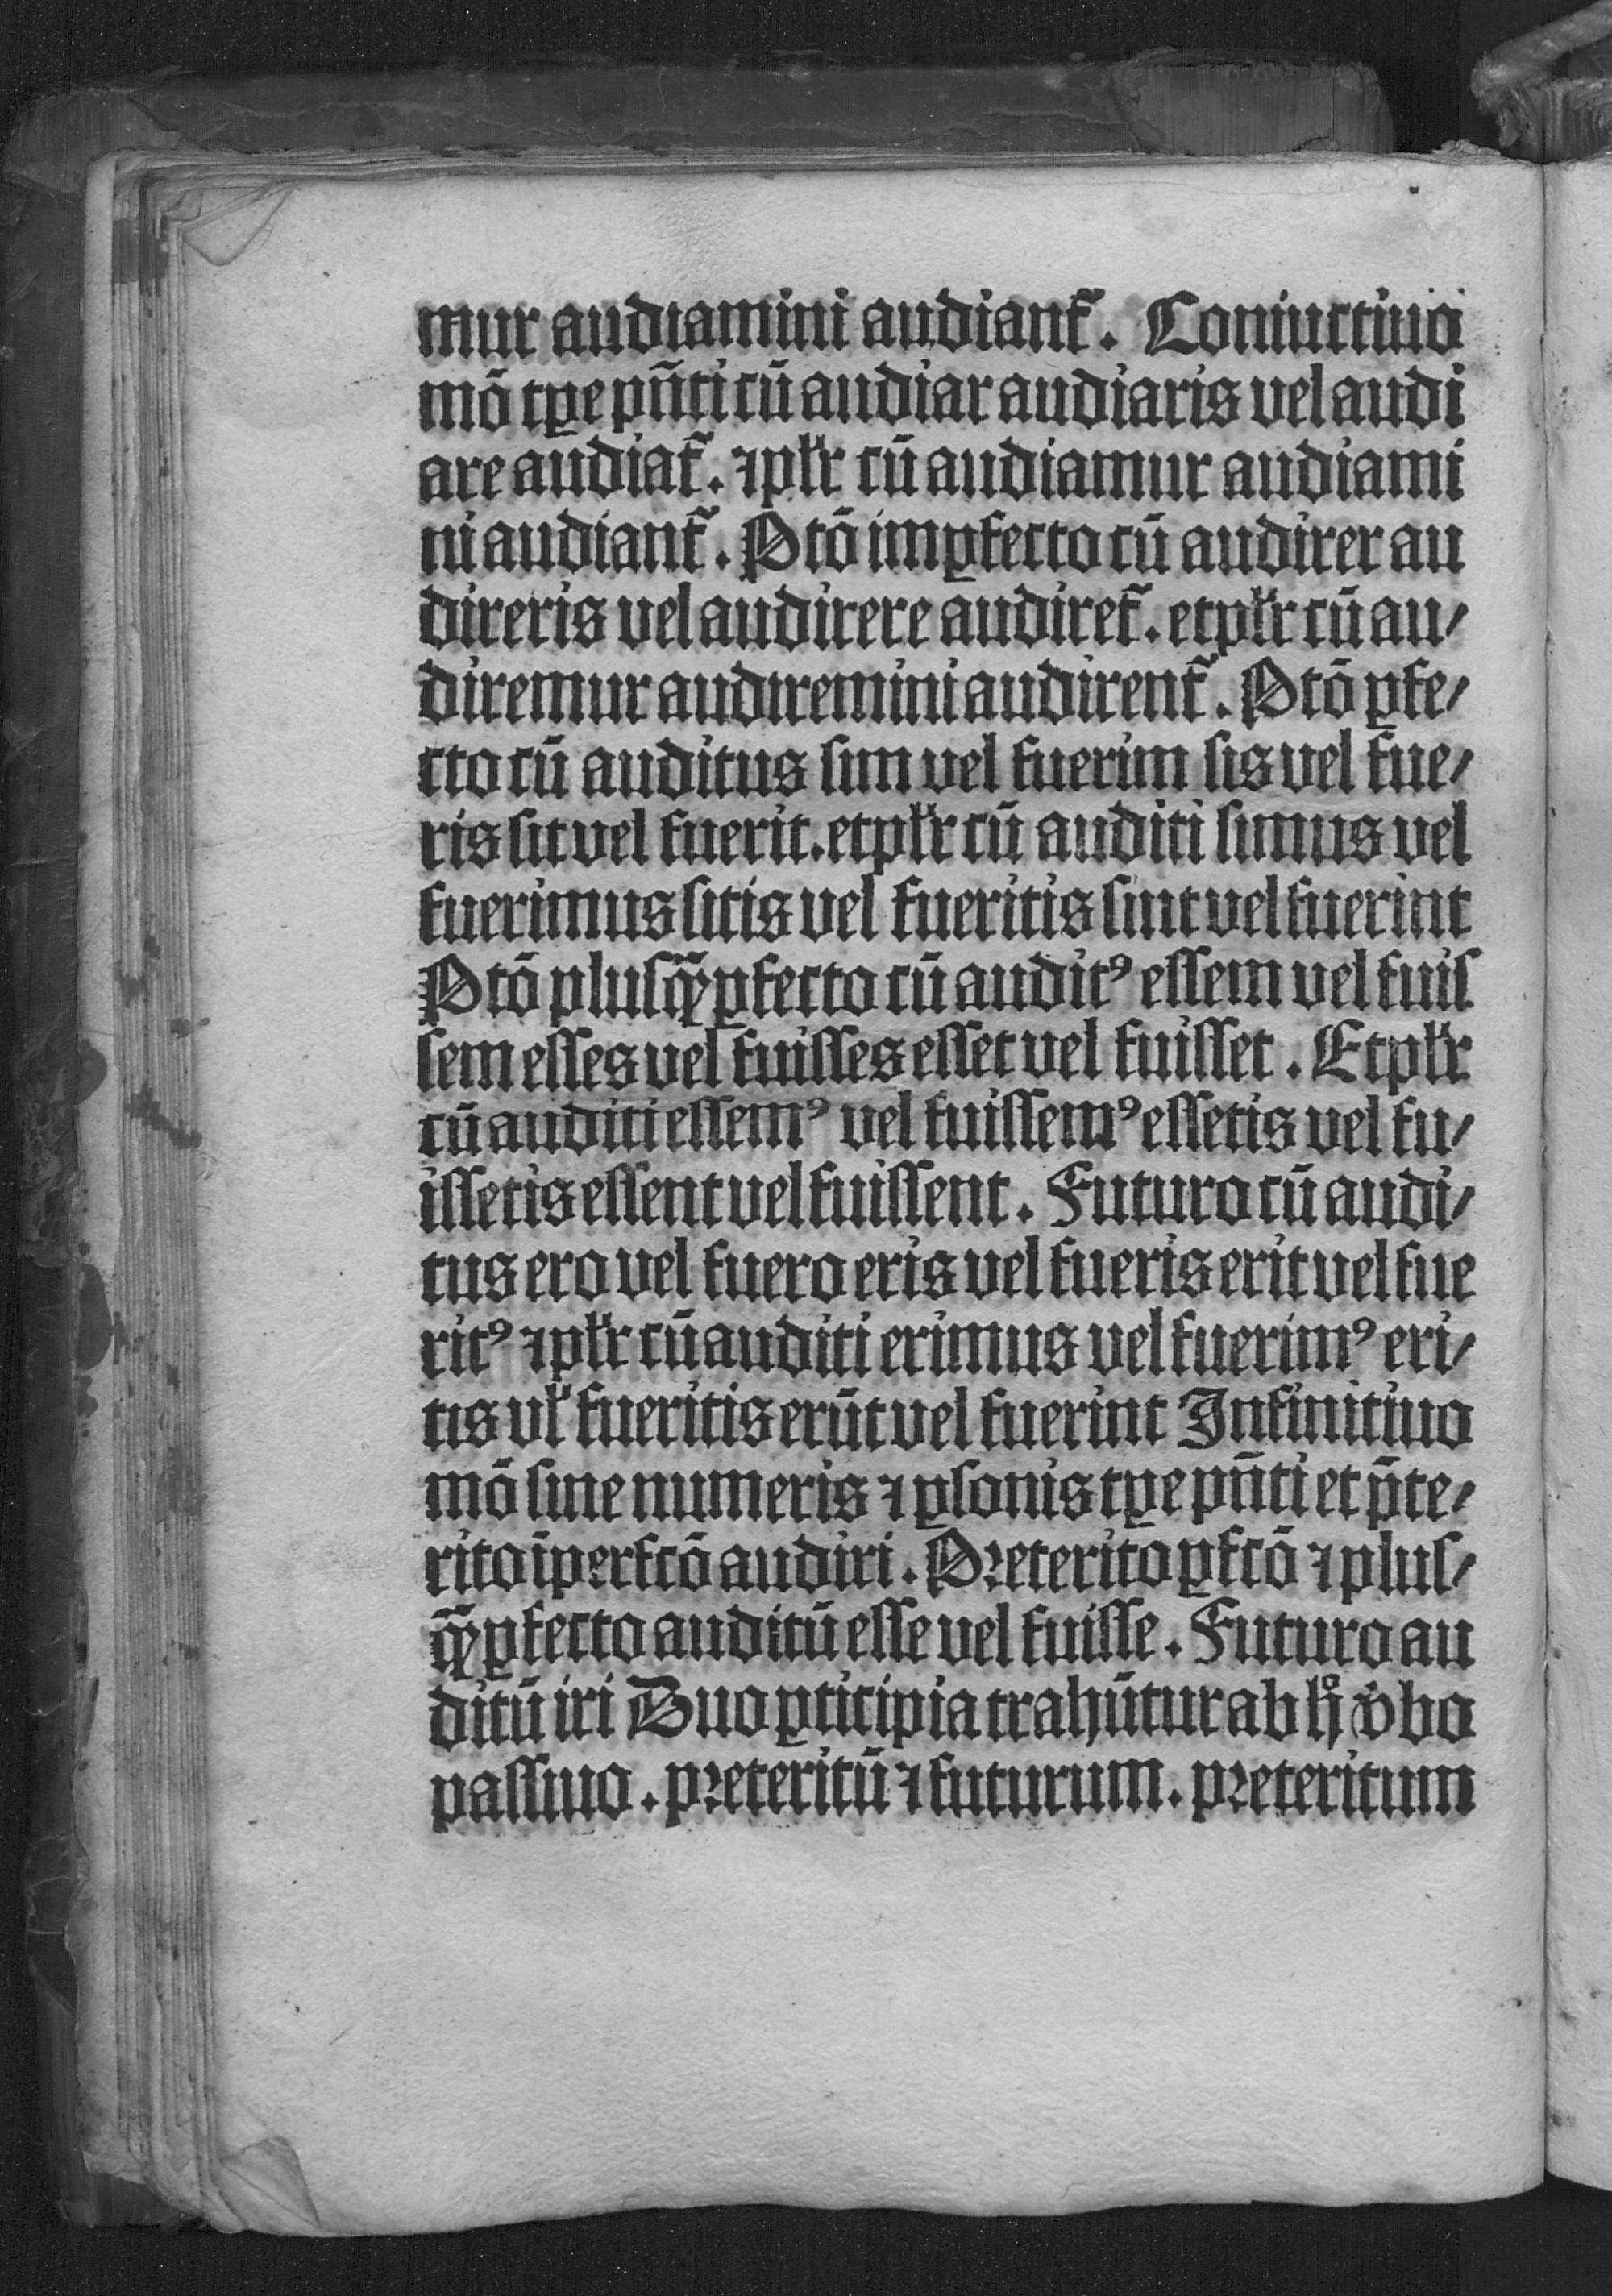 mur audiamini audiant᷑. Coniuctiuo
mō tꝑe pn̄ti cū audiar audiaris vel audi
are audiat᷑. ⁊ plr̄ cū audiamur audiami
ni audiant᷑. Ptō imꝑfecto cū audirer au
direris vel audirere audiret᷑. et plr̄ cū au/
diremur audiremini audirent᷑. Ptō ꝑfe/
cto cū auditus sim vel fuerim sis vel fue/
ris sit vel fuerit. et plr̄ cū auditi simus vel
fuerimus sitis vel fueritis sint vel fuerint
Ptō plusq̄ꝑfecto cū auditꝰ essem vel fuis
sem esses vel fuisses esset vel fuisset. Et plr̄
cū auditi essemꝰ vel fuissemꝰ essetis vel fu/
issetis essent vel fuissent. Futuro cū audi/
tus ero vel fuero eris vel fueris erit vel fue
ritꝰ ⁊ plr̄ cū auditi erimus vel fuerimꝰ eri/
tis vl̄ fueritis erūt vel fuerint Infinitiuo
mō sine numeris ⁊ ꝑsonis tꝑe pn̄ti et p̄te/
rito īperfcō audiri. Preterito ꝑfcō ⁊ plus/
q̄ꝑfecto auditū esse vel fuisse. Futuro au
ditū iri Duo ꝑticipia trahūtur ab hͦ v̄bo
passiuo. preteritū ⁊ futurum. preteritum